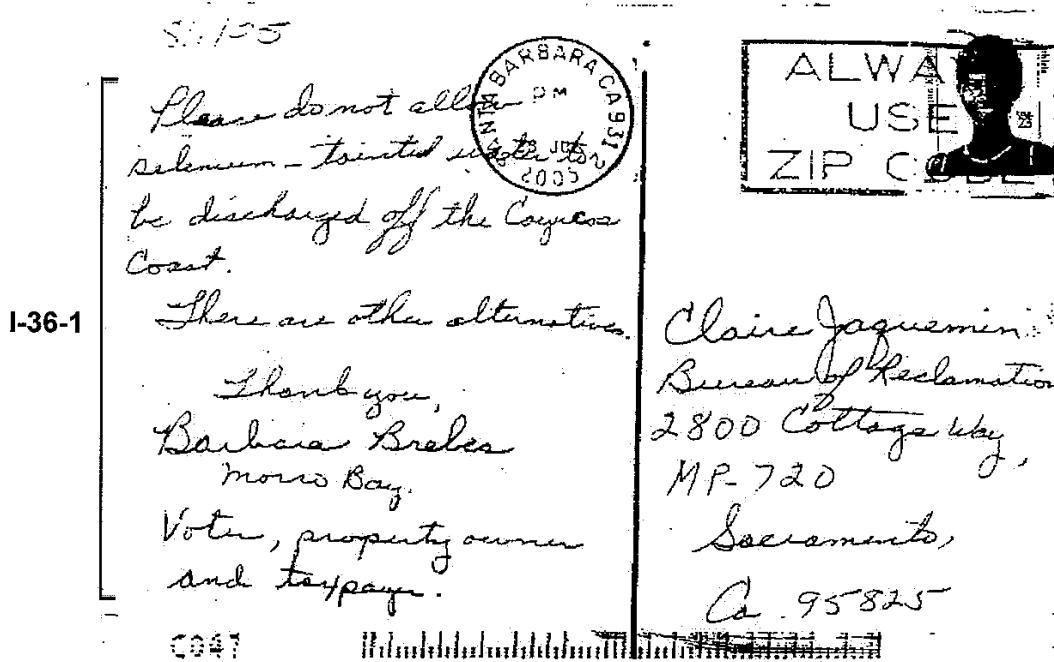 Please do not allow
selenium-tainted water to
be discharged off the Cayucos
Coast.
There are other alternatives.
Thank you,
Barbara Brebes
Morro Bay.
Voter, property owner
and taxpayer.
I-36-1
SANTA BARBARA CA 931
PM
2005
ALWA
USE
ZIP CODE
Claire Jaquemin
Bureau of Reclamation
2800 Cottage Way,
MP-720
Sacramento,
Ca. 95825
C047